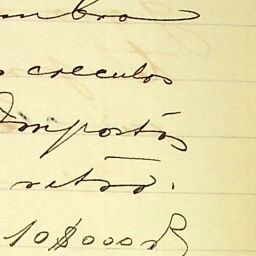 mbro
calculos
Impostos
retro.
10$000 R